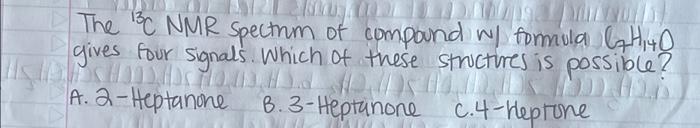 The ¹³C NMR spectrum of compound w/ formula C₇H₁₄O
gives four signals. Which of these structures is possible?
A. 2-Heptanone B. 3-Heptanone C. 4-Heptone